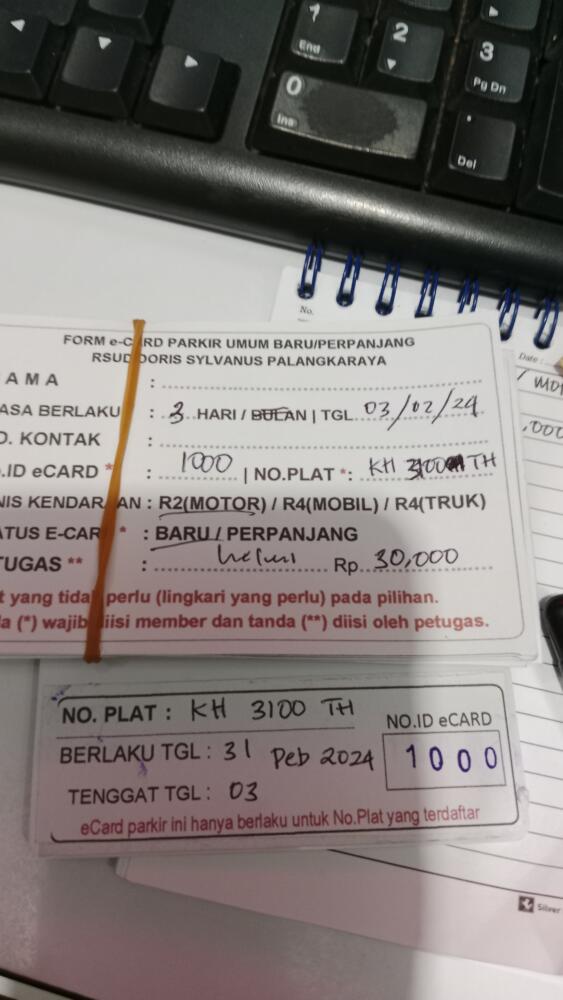 1
End
2
3
Pg Dn
0
Ins
.
Del
No.
Date :
FORM e-CARD PARKIR UMUM BARU/PERPANJANG
RSUD DORIS SYLVANUS PALANGKARAYA
AMA :
ASA BERLAKU : 3 HARI / BULAN | TGL 03/02/24
O. KONTAK :
O.ID eCARD * : 1000 | NO.PLAT *: KH 3100 TH
NIS KENDARAAN : R2(MOTOR) / R4(MOBIL) / R4(TRUK)
ATUS E-CARD * : BARU / PERPANJANG
TUGAS ** : Rp. 30,000
t yang tidak perlu (lingkari yang perlu) pada pilihan.
a (*) wajib diisi member dan tanda (**) diisi oleh petugas.
,000
NO. PLAT : KH 3100 TH
NO.ID eCARD
BERLAKU TGL : 31 Peb 2024
1000
TENGGAT TGL : 03
eCard parkir ini hanya berlaku untuk No.Plat yang terdaftar
Silver